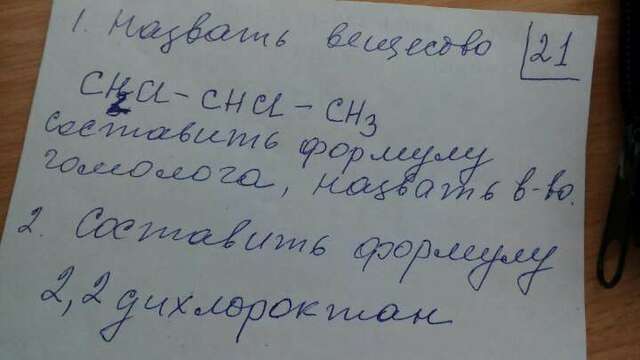 1. Назвать вещесово 21
CH2Cl - CHCl - CH3
составить формулу
гомолога, назвать в-во.
2. Составить формулу
2,2 дихлороктан